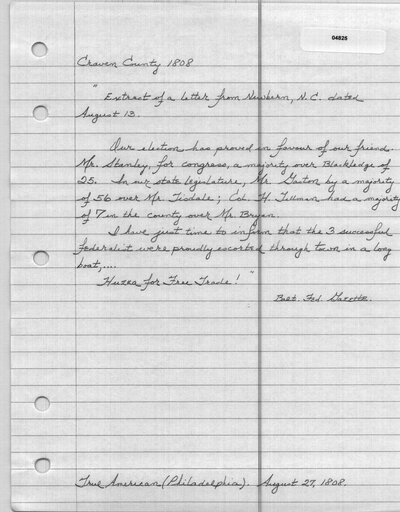 04825
Craven County 1808
" Extract of a letter from Newbern, N.C. dated
August 13.
Our election has proved in favour of our friend.
Mr. Stanley, for congress, a majority over Blackledge of
25. In our state legislature, Mr. Gaston by a majority
of 56 over Mr. Tisdale; Col. H. Tillman had a majority
of 7 in the county over Mr. Bryan.
I have just time to infirm that the 3 successful
Federalist were proudly escorted through town in a long
boat,....
Huzza for Free Trade! "
Balt. Fed. Gazette.
True American (Philadelphia). August 27, 1808.